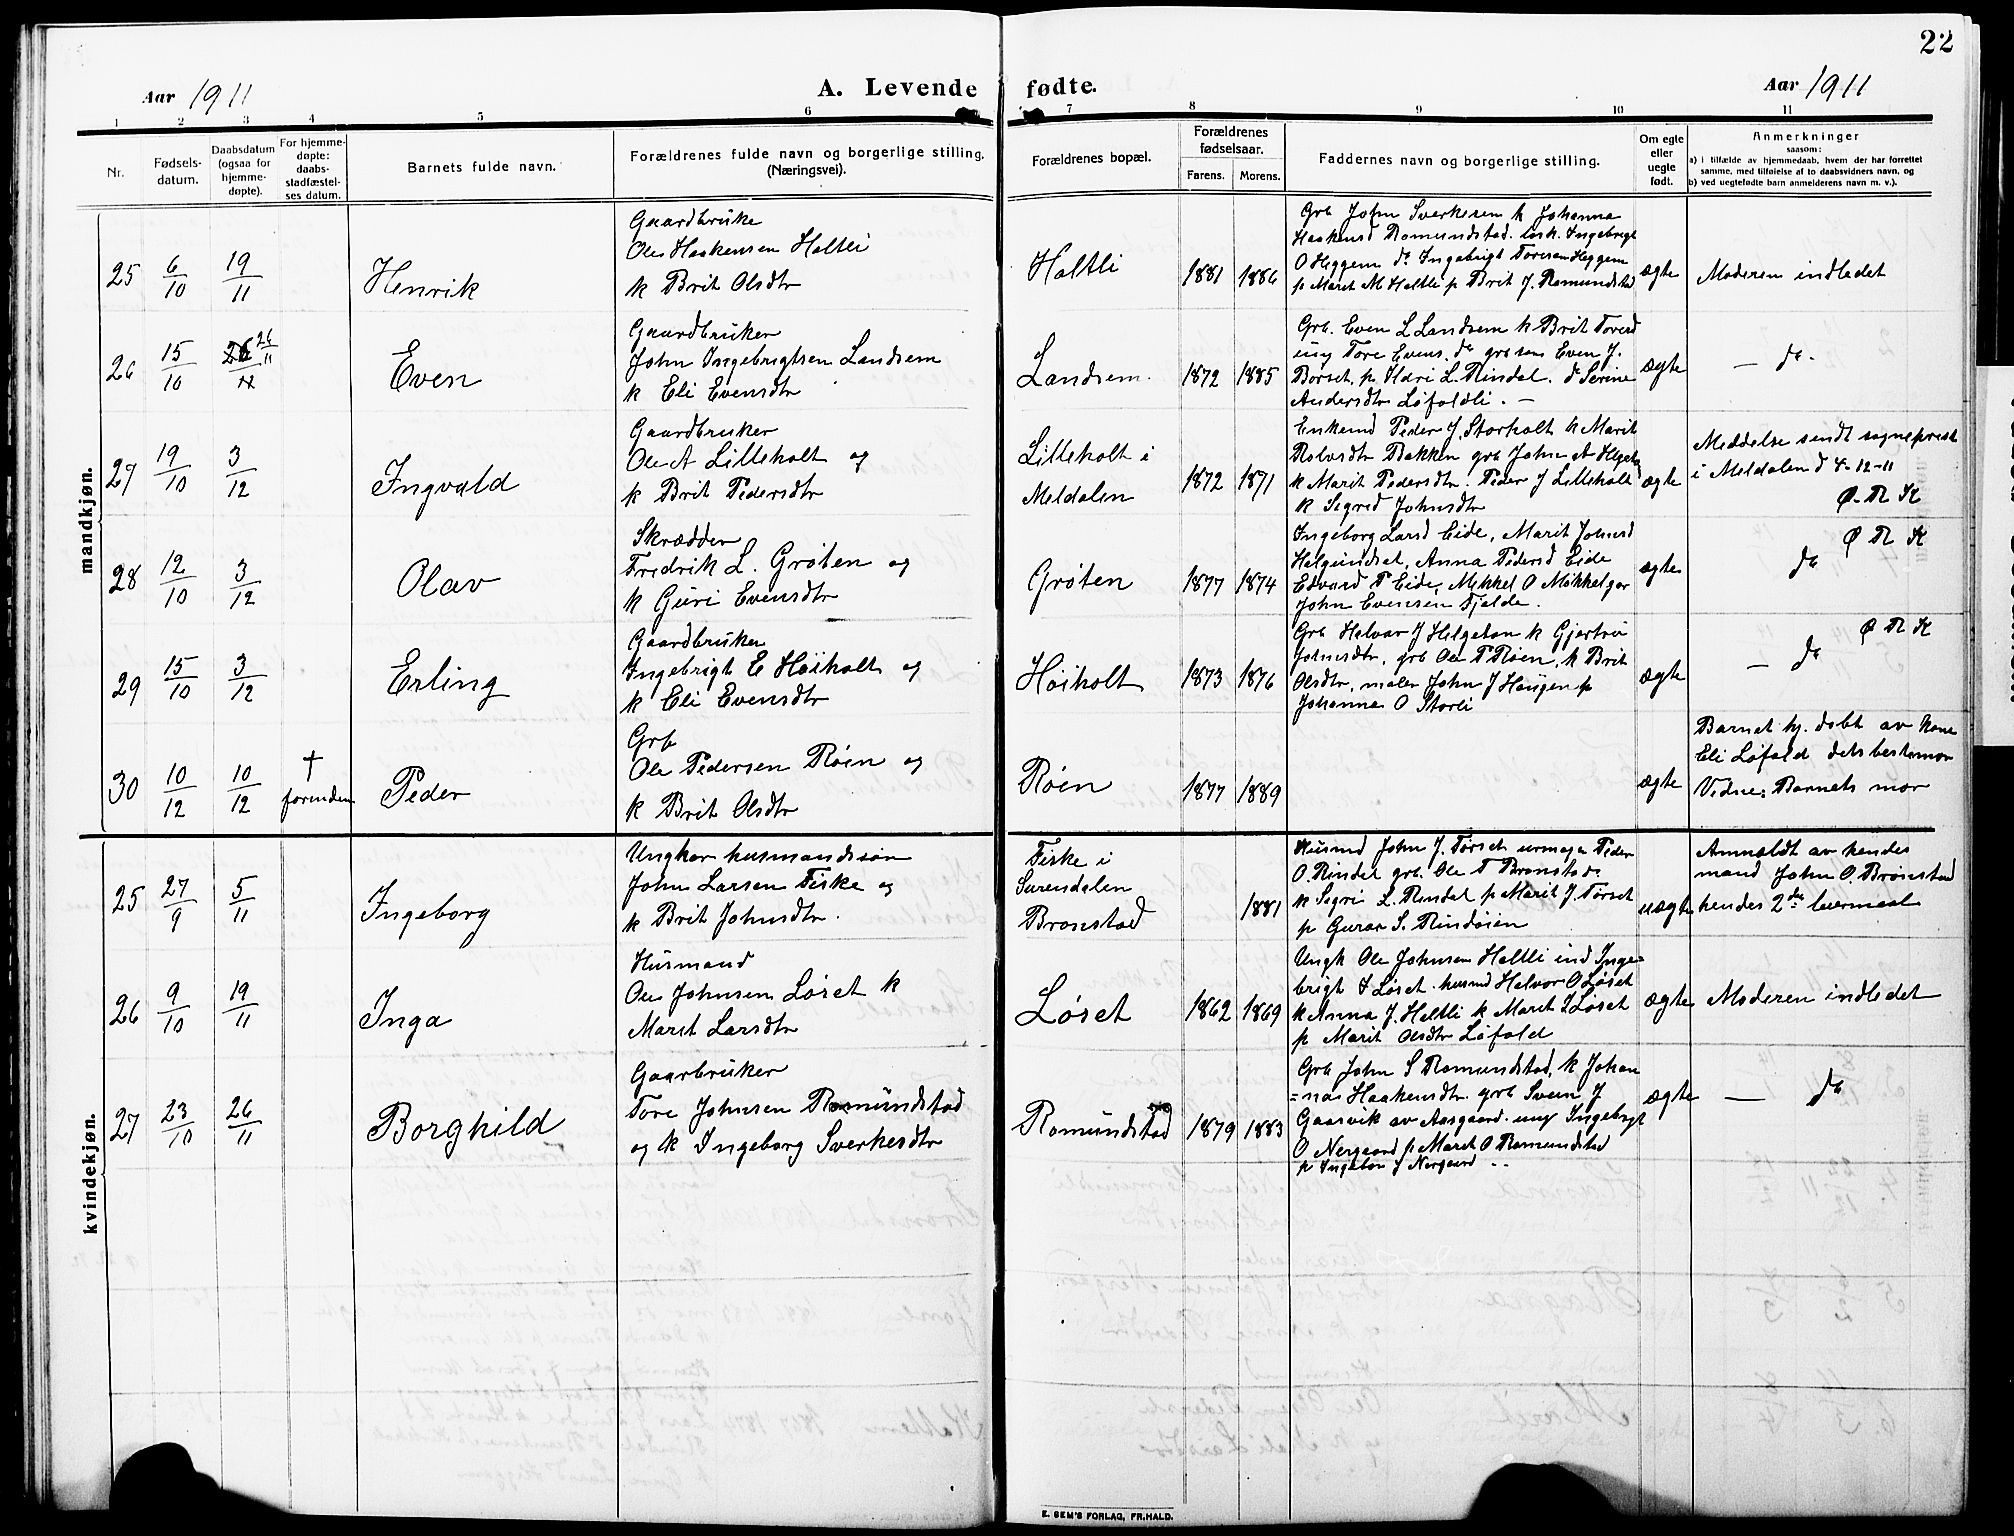 22
Aar 1911
A. Levende fødte.
Aar 1911
1 2 3 4 5 6 7 8 9 10 11
Nr.
Fødsels-
datum.
Daabsdatum
(ogsaa for
hjemme-
døpte).
For hjemme-
døpte:
daabs-
stadfæstel-
ses datum.
Barnets fulde navn.
Forældrenes fulde navn og borgerlige stilling.
(Næringsvei).
Forældrenes bopæl.
Forældrenes
fødselsaar.
Farens. Morens.
Faddernes navn og borgerlige stilling.
Om egte
eller
uegte
født.
Anmerkninger
saasom:
a) i tilfælde av hjemmedaab, hvem der har forrettet
samme, med tilføielse af to daabsvidners navn, og
b) ved uegtefødte barn anmelderens navn m. v.).
mandkjøn.
25 6/10 19/11 Henrik
Gaardbruke
Ole Haakensen Holtli
k Brit Olsdtr
Holtli 1881 1886
Grb John Sverkesen k Johanna
Haakensd Romundstad. Ingebrigt
O Heggem do Ingebrigt Toresen Heggem
p Marit M Holtli p Brit J. Romundstad
ægte
Moderen indledet
26 15/10 26/11 Even
Gaardbruker
John Ingebrigtsen Landsem
k Eli Evensdtr
Landsem 1872 1885
Grb. Even L Landsem k Brit Toresd
ung Tore Evens. do grb søn Even J.
Børset, p Ildri L. Rindal. d Serine
Andersdtr Løfaldli. —
ægte
— do.
27 19/10 3/12 Ingvald
Gaardbruker
Ole A Lilleholt og
k Brit Pedersdtr
Lilleholt i
Meldalen
1872 1871
Enkemd Peder J. Storholt k Marit
Rolvsdtr Bakken grb John A Helgeton
k Marit Pedersdtr. Peder J Lilleholt
k Sigrid Johnsdtr
ægte
Meddelse sendt sogneprest
i Meldalen d 4-12-11
Ø. R K
28 12/10 3/12 Olav
Skrædder
Fredrik L. Grøten og
k Guri Evensdtr
Grøten 1877 1874
Ingeborg Larsd Eide, Marit Johnsd
Helgundset, Anna Pedersd Eide
Edvard P Eide, Mikkel O Mikkelgar
John Evensen Fjelde.
ægte
do
Ø R K
29 15/10 3/12 Erling
Gaardbruker
Ingebrigt E Høiholt og
k Eli Evensdtr
Høiholt 1873 1876
Grb Halvor J Helgeton k Gjertru
Johnsdtr, grb Ole P Røen, k Brit
Olsdtr, maler John J Haugen p
Johanna O Storli
ægte
— do
Ø R K
30 10/12 10/12
†
forinden
Peder
Grb
Ole Pedersen Røen og
k Brit Olsdtr
Røen 1877 1889
ægte
Barnet hj. døbt av kone
Eli Løfald dets bestemor
Vidne: Barnets mor
kvindekjøn.
25 27/9 5/11 Ingeborg
Ungkar husmandssøn
John Larsen Fiske og
k Brit Johnsdtr.
Fiske i
Surendalen
Brønstad
1881
Husmd John J. Tørset urmager Peder
O. Rindal grb. Ole T Brønstad
k Sigri L. Rindal p Marit J. Tørset
p Guran S. Rindøien
uægte
Anmeldt av hendes
mand John O. Brønstad
hendes 2det leiermaal
26 9/10 19/11 Inga
Husmand
Ole Johnsen Løset k
Marit Larsdtr
Løset 1862 1869
Ungk Ole Johnsen Holtli ind Inge=
brigt Løset. husmd Halvor O Løset
k Anna J. Holtli k Marit I Løset
p Marit Olsdtr Løfald
ægte
Moderen indledet
27 23/10 26/11 Borghild
Gaarbruker
Tore Johnsen Romundstad
og k Ingeborg Sverkesdtr
Romundstad 1879 1883
Grb John S Romundstad, k Johan
=na Haakensdtr grb Svein J
Gaasvik av Aasgaard. ung Ingebrigt
O Nergaard p Marit O Romundstad
p Ingebor J Nergaard
ægte
— do
E. SEM'S FORLAG, FR.HALD.